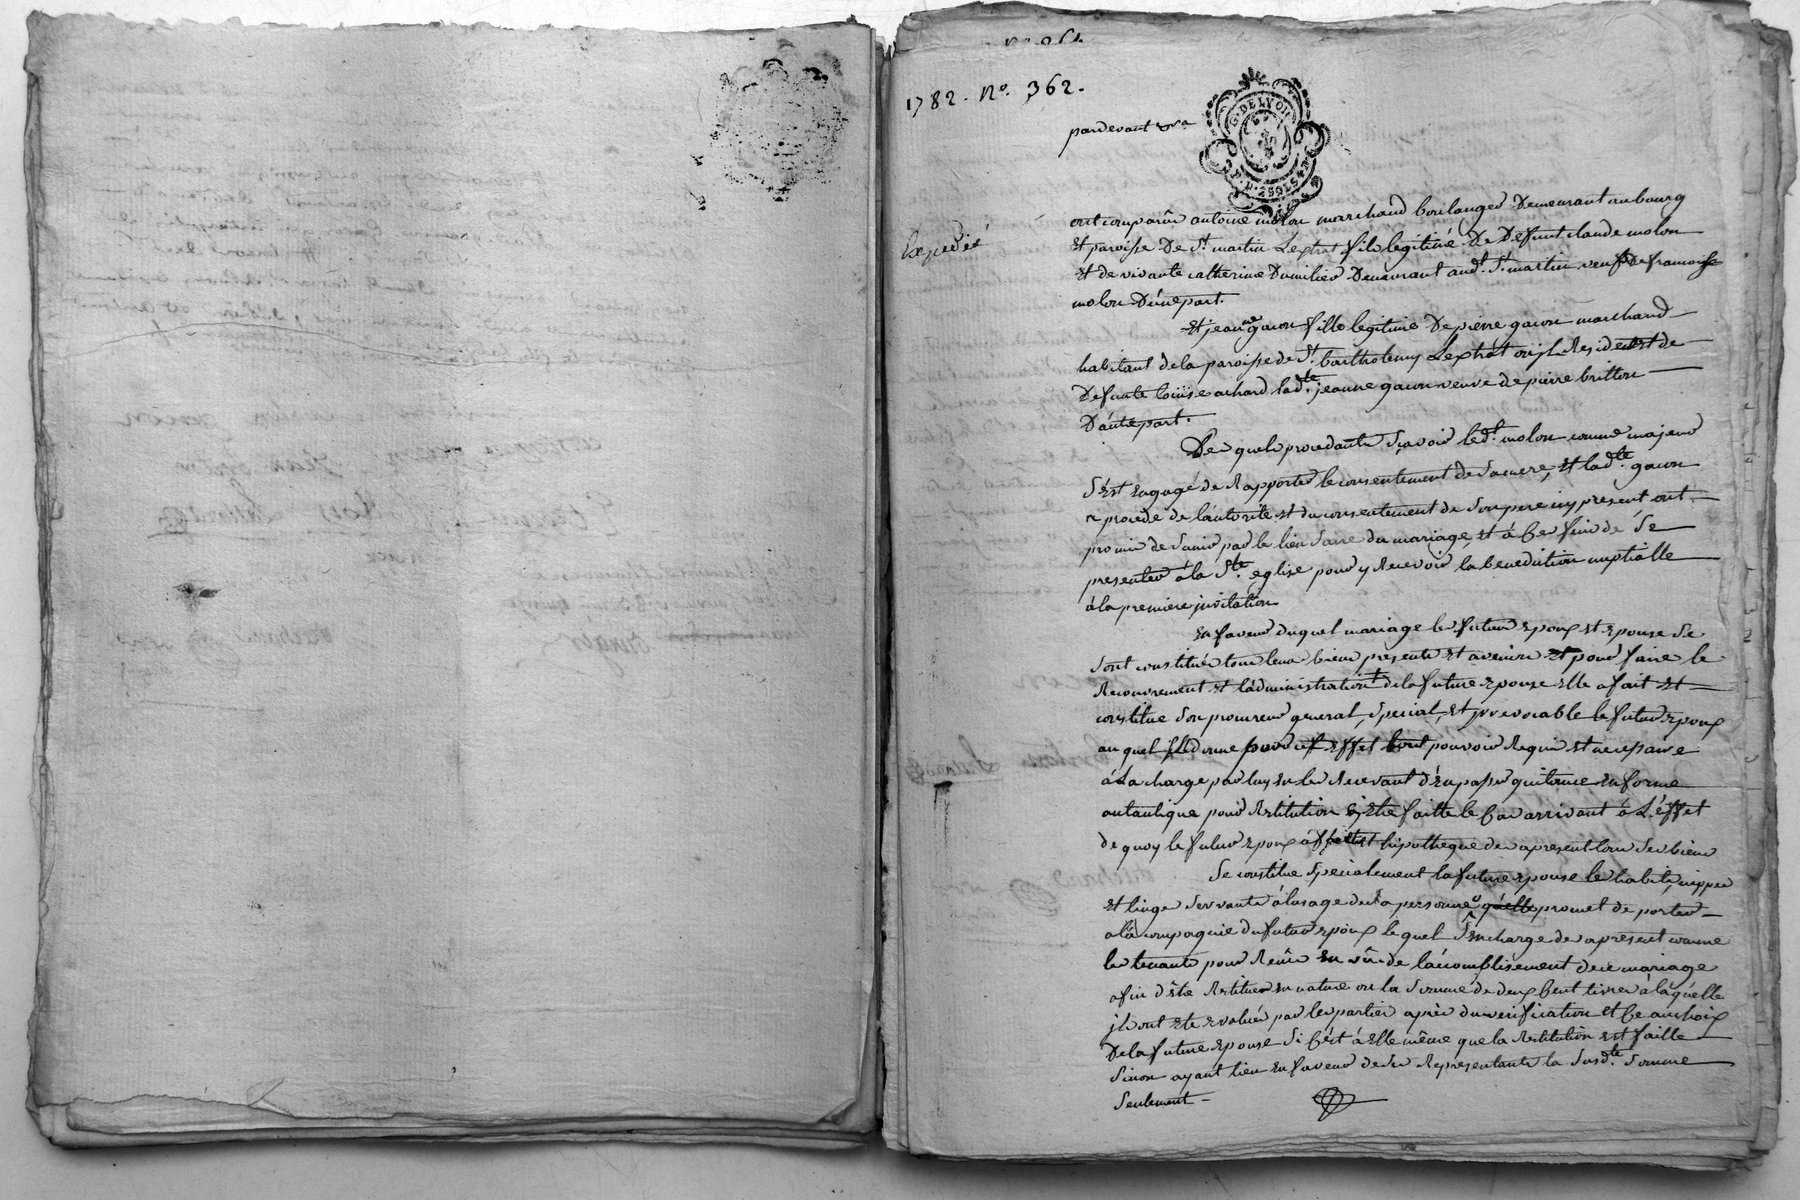 1782. N°. 362.
pardevant
G. DE LYON
Expedié
ont comparûs antoine molon marchand boulanger Demeurant au bourg
Et paroisse De St. martin Lestrat fils legitime De Defunt claude molon
Et de vivante catherine Dumilier Demeurant aud. St. martin veuf De francoise
molon D'une part.
Et jeanne gacon fille legitime De pierre gacon marchand
habitant de la paroisse de St. barthelemy Lestrat où jl Reside Et de
Defunte Loüise achard lad.te jeanne gacon veuve de pierre britton
D'autre part.
Les quels procedants Sçavoir led.t molon comme majeur
S'est Engagé de Rapporter le consentement de Sa mere, Et lad.te gacon
procede de l'autorité Et du consentement de Son pere icy present ont
promis de S'unir par le lien Sacré du mariage, Et à Ces fins de Se
presenter à la Ste. eglise pour y Recevoir la benediction nuptialle
à la premiere jnvitation
En faveur duquel mariage les futurs Epoux Et Epouse Se
Sont constitués tous leurs biens presents Et avenirs Et pour faire le
Recouvrement Et l'administration de la future Epouse Elle a fait Et
constitue Son procureur general, Special, Et jrrevocable le futur Epoux
au quel Elle donne pour cet Effet tout pouvoir Requis Et necessaire
à La charge par luy En les Recevant d'En passer quittance En forme
autantique pour Restitution En Etre faitte le Cas arrivant à L'éffet
de quoy le futur Epoux affecte Et hipotheque des apresent tous Ses biens
Se constitue Specialement la future Epouse les habits, nippes
Et linges Servants à l'usage de Sa personne qu'elle promet de porter
a la compagnie du futur Epoux le quel S'En charge des apresent comme
les tenants pour Reçûs En vûe de l'accomplissement de ce mariage
afin d'être Restitués En nature ou la Somme de deux Cent livres à laquelle
jls ont Eté Evalués par les parties après duë verification Et Ce au choix
De la future Epouse Si C'est à Elle même que la Restitution Est faitte
Sinon ayant lieu En faveur de Ses Representants la Susd.te Somme
Seulement